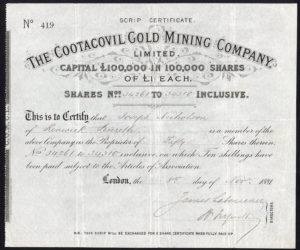 SCRIP CERTIFICATE.
Nº 419
THE COOTACOVIL GOLD MINING COMPANY,
LIMITED.
CAPITAL £100,000 IN 100,000 SHARES
OF £1 EACH.
SHARES Nos 34261 TO 34310 INCLUSIVE.
This is to Certify that Joseph Nicholson
of is a member of the
above Company as the Proprietor of Fifty Shares therein
No 34261 to 34310 inclusive, on which Ten shillings have
been paid subject to the Articles of Association.
London, the day of Nov. 1881
DIRECTORS.
N.B. THIS SCRIP WILL BE EXCHANGED FOR A SHARE CERTIFICATE WHEN FULLY PAID UP.